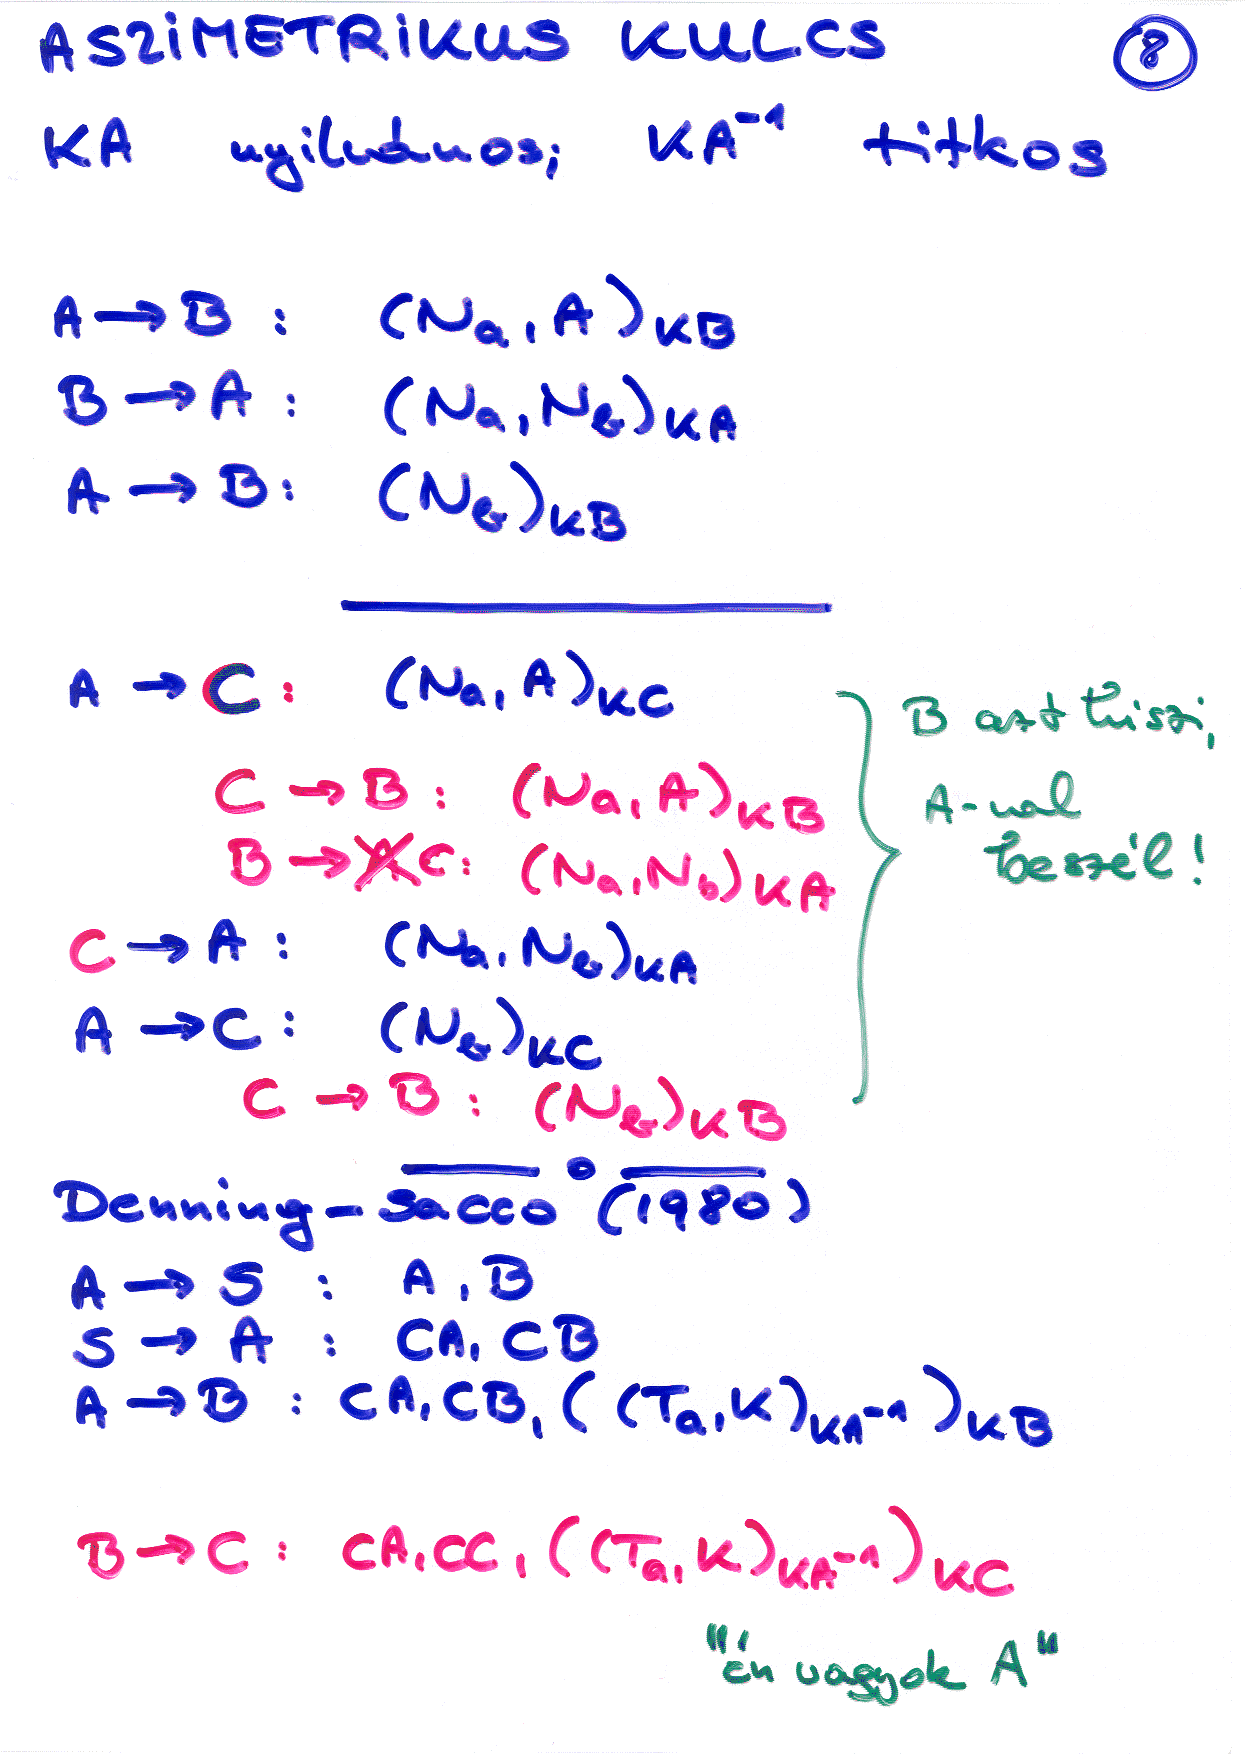 ASZIMETRIKUS KULCS 8
KA nyilvános; KA⁻¹ titkos
A → B : (Na, A)KB
B → A : (Na, Nb)KA
A → B : (Nb)KB
A → C : (Na, A)KC
C → B : (Na, A)KB
B → A C : (Na, Nb)KA
C → A : (Na, Nb)KA
A → C : (Nb)KC
C → B : (Nb)KB
B azt hiszi,
A-val
beszél!
Denning-Sacco (1980)
A → S : A, B
S → A : CA, CB
A → B : CA, CB, ((Ta, K)KA⁻¹)KB
B → C : CA, CC, ((Ta, K)KA⁻¹)KC
"én vagyok A"